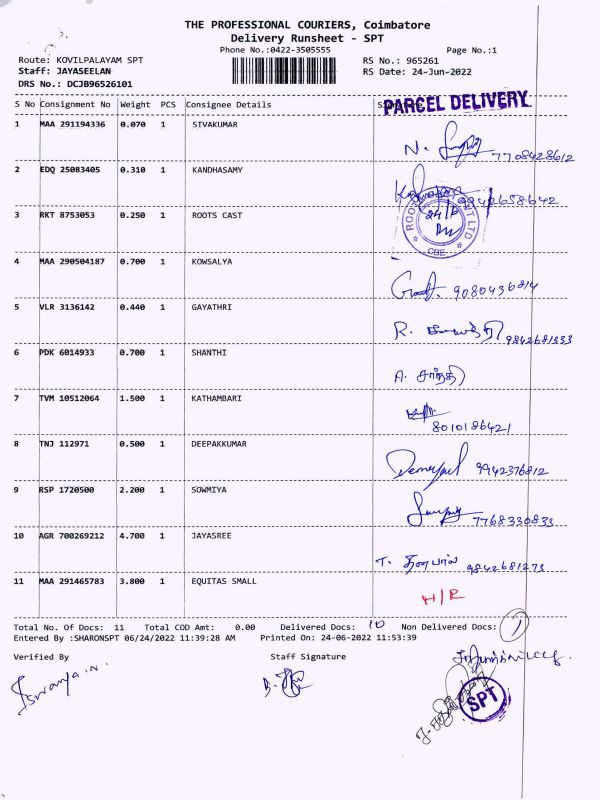 THE PROFESSIONAL COURIERS, Coimbatore
Delivery Runsheet - SPT
Phone No.:0422-3505555 Page No.:1
Route: KOVILPALAYAM SPT RS No.: 965261
Staff: JAYASEELAN RS Date: 24-Jun-2022
DRS No.: DCJB96526101
PARCEL DELIVERY
S No Consignment No Weight PCS Consignee Details
1 MAA 291194336 0.070 1 STVAKUMAR
N. 7708428612
2 EDQ 25083405 0.310 1 KANDHASAMY
9942658642
3 RKT 8753053 0.250 1 ROOTS CAST
ROOT VT LTD
24/6
CBE
4 MAA 290504187 0.700 1 KOWSALYA
9080436814
5 VLR 3136142 0.440 1 GAYATHRI
R. 9842681333
6 PDK 6014933 0.700 1 SHANTHI
A. சாந்தி
7 TVM 10512064 1.500 1 KATHAMBARI
8010186421
8 TNJ 112971 0.500 1 DEEPAKKUMAR
9942376812
9 RSP 1720500 2.200 1 SOWMIYA
7768330833
10 AGR 700269212 4.700 1 JAYASREE
T. 9842681273
11 MAA 291465783 3.800 1 EQUITAS SMALL
H/R
Total No. Of Docs: 11 Total COD Amt: 0.00 Delivered Docs: 10 Non Delivered Docs: 1
Entered By :SHARONSPT 06/24/2022 11:39:28 AM Printed On: 24-06-2022 11:53:39
Verified By Staff Signature
SPT